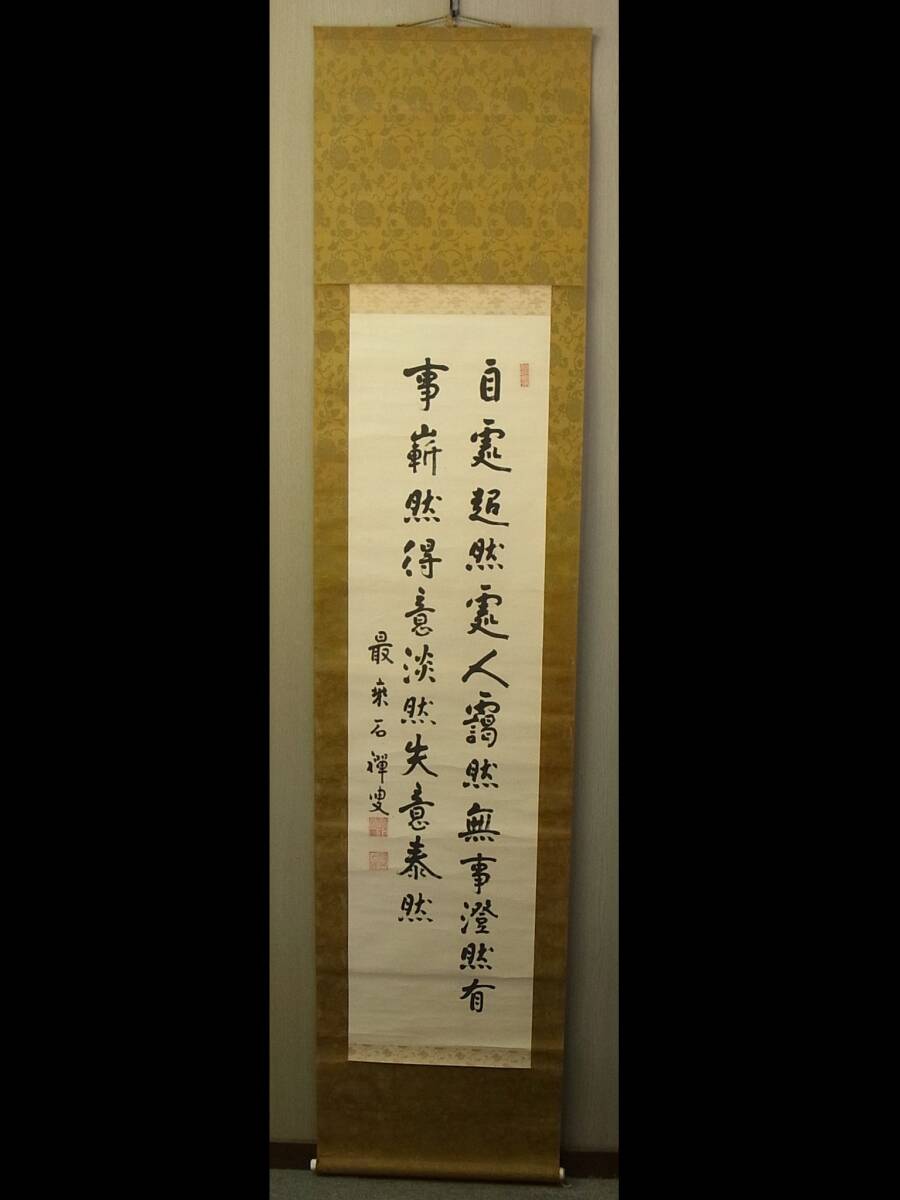 自處超然處人靄然無事澄然有
事嶄然得意淡然失意泰然
最乘石禅叟